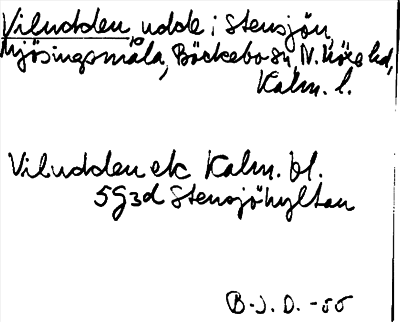 Viludden, udde i Stensjön,
Mjösingsmåla, Bäckebo sn, N. Möre hd,
Kalm. l.
Viludden ek Kalm. bl.
5G3d Stensjöhyltan
B.J.D. -55